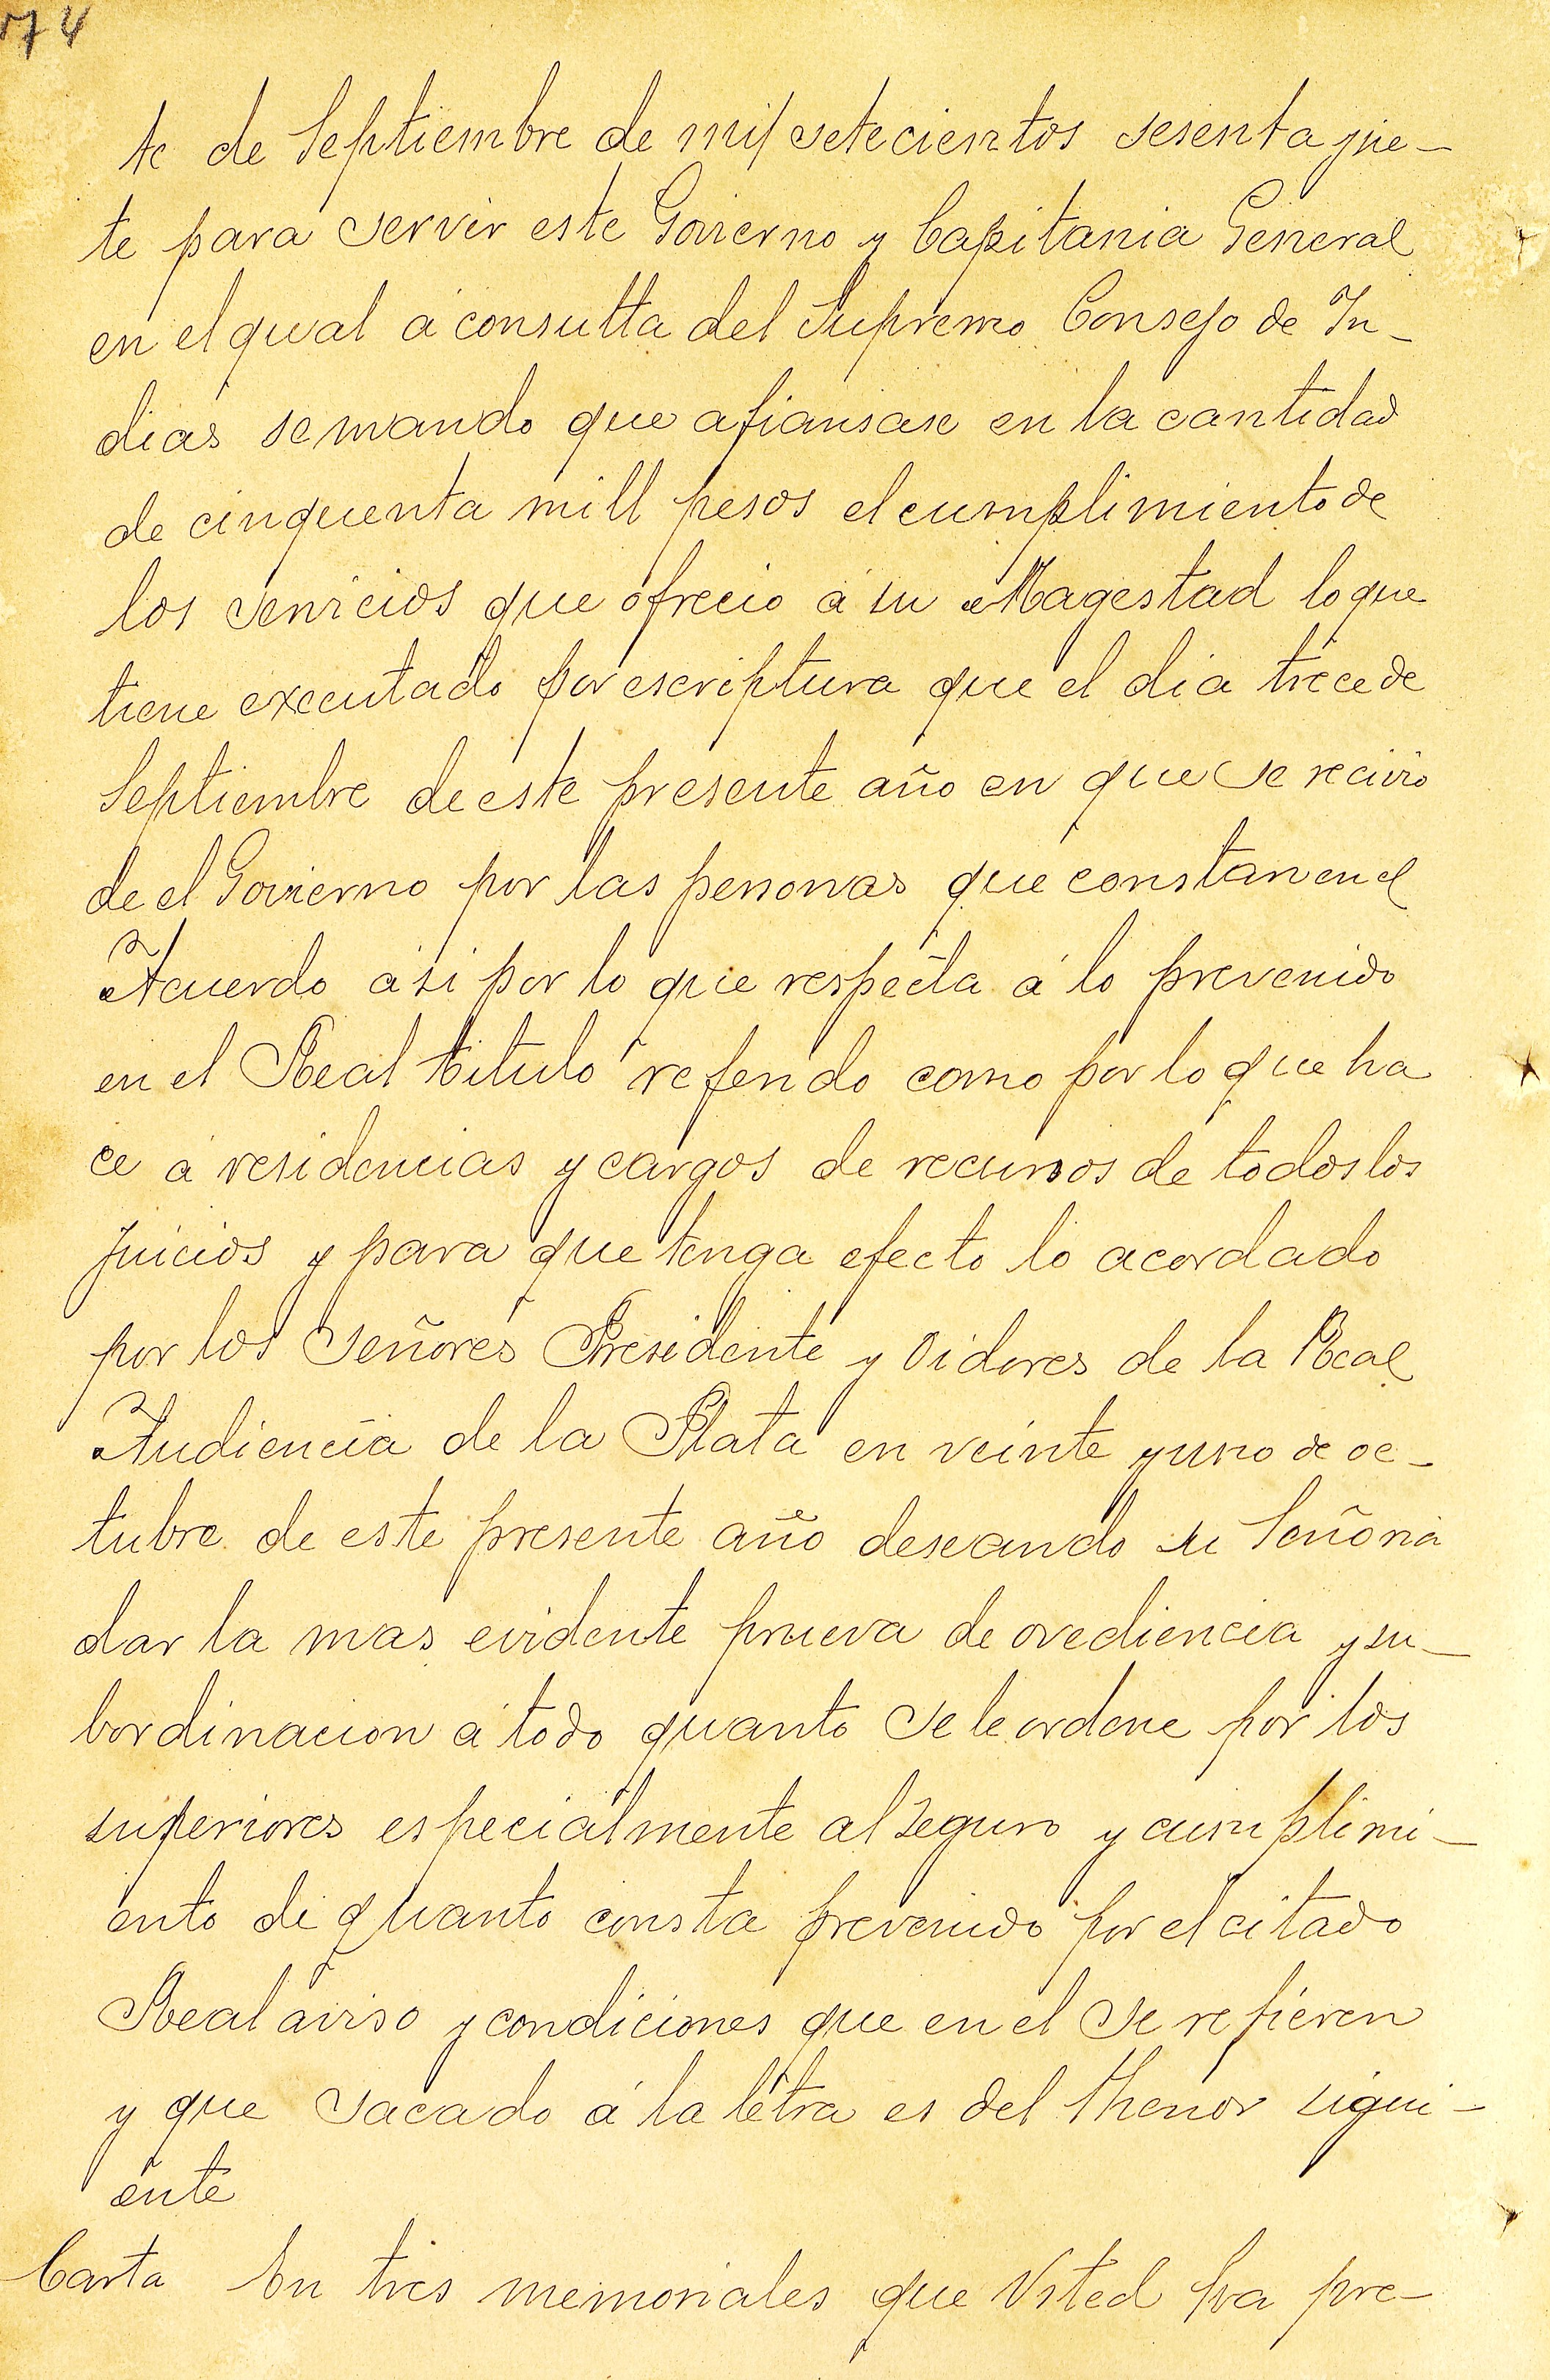 174
te de Septiembre de mil setecientos sesenta y sie-
te para servir este Govierno y Capitania General
en el qual á consulta del Supremo Consejo de In-
dias se mando que afiansase en la cantidad
de cinquenta mill pesos el cumplimiento de
los servicios que ofrecio á su Magestad lo que
tiene executado por escriptura que el dia trece de
Septiembre de este presente año en que se recivio
de el Govierno por las personas que constan en el
Acuerdo asi por lo que respecta á lo prevenido
en el Real titulo referido como por lo que ha
ce á residencias y cargos de recursos de todos los
Juicios y para que tenga efecto lo acordado
por los Señores Presidente y Oidores de la Real
Audiencia de la Plata en veinte y uno de oc-
tubre de este presente año deseando su Señoria
dar la mas evidente prueva de ovediencia y su-
bordinacion á todo quanto se le ordene por los
superiores especialmente al seguro y cumplimi-
ento de quanto consta prevenido por el citado
Real aviso y condiciones que en el se refieren
y que sacado á la letra es del thenor sigui-
ente
Carta En tres memoriales que Usted ha pre-